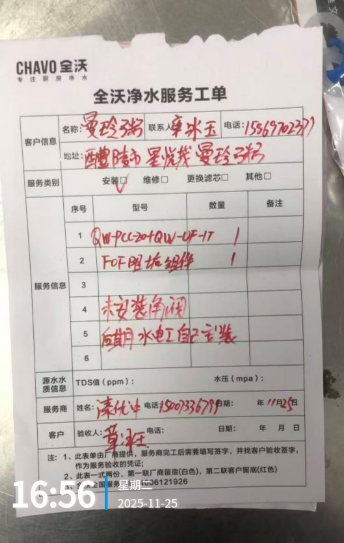 CHAVO 全沃
专注厨房净水
全沃净水服务工单
客户信息 名称: 曼玲粥 联系人 电话:
地址: 醴陵市星悦城曼玲粥
服务类别 安装☑ 维修□ 更换滤芯□ 其他□
服务信息 序号 型号 数量 备注
1 QW-PCC-20+QW-UF-1T 1
2 FOF阻垢组件 1
3
4 未安装角阀
5 后期水电工自己安装
6
源水水质信息 TDS值(ppm): 水压(mpa):
服务商 姓名: 电话: 日期: 年11月25日
客户 验收人: 电话: 日期: 年 月 日
注: 1、此表单由厂商提供,服务商完工后需要填写签字,并找客户验收签字,
作为服务验收的凭证;
2、此表一式两份,第一联厂商留底(白色),第二联客户留底(红色)
16:56
星期二
2025-11-25